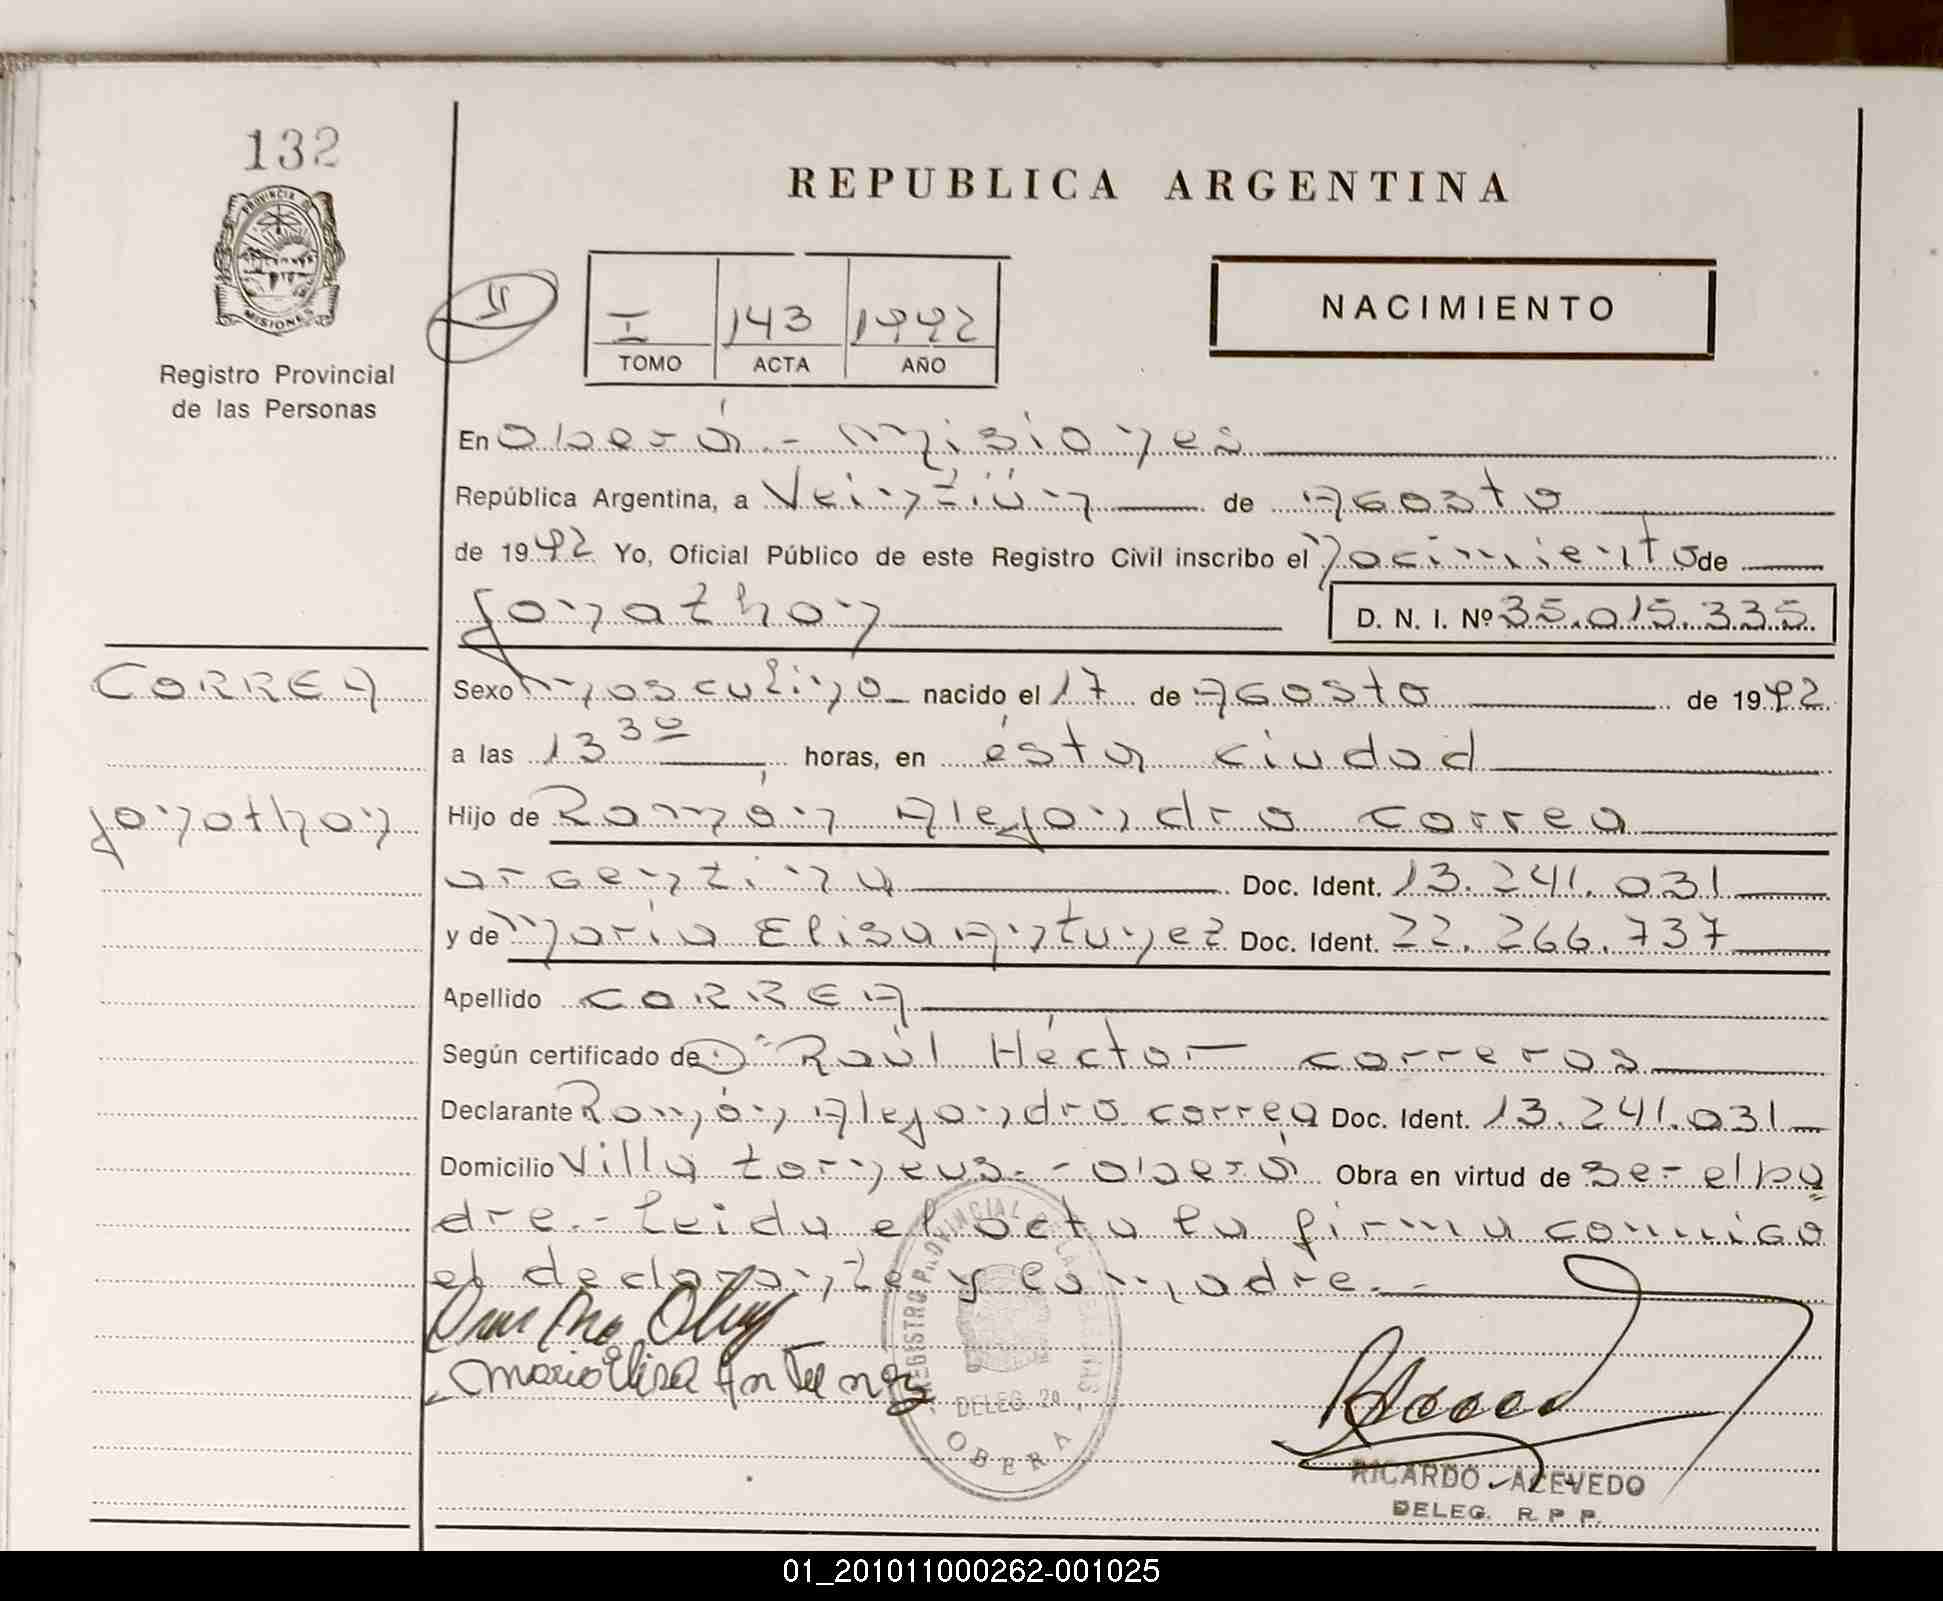 132
PROVINCIA D
MISIONES
Registro Provincial
de las Personas
REPUBLICA ARGENTINA
II
I 143 1992
TOMO ACTA AÑO
NACIMIENTO
En Oberá - Misiones
República Argentina, a Veintiún de Agosto
de 1992 Yo, Oficial Público de este Registro Civil inscribo el Nacimiento de
Jonathan D. N. I. Nº 35.015.335.
CORREA
Jonathan
Sexo Masculino nacido el 17 de Agosto de 1992
a las 13 30 horas, en ésta ciudad
Hijo de Ramón Alejandro Correa
argentina Doc. Ident. 13.241.031
y de María Elisa Antunez Doc. Ident. 22.266.737
Apellido CORREA
Según certificado de Dr Raúl Héctor Correras
Declarante Ramón Alejandro Correa Doc. Ident. 13.241.031
Domicilio Villa Oberá Obra en virtud de ser el pa
dre.- Leida el acta la firma conmigo
el declarante y la madre.-
Maria Elisa Antunez
REGISTRO PROVINCIAL DE LAS PERSONAS
DELEG. 20
OBERA
RICARDO ACEVEDO
DELEG. R. P. P.
01_201011000262-001025